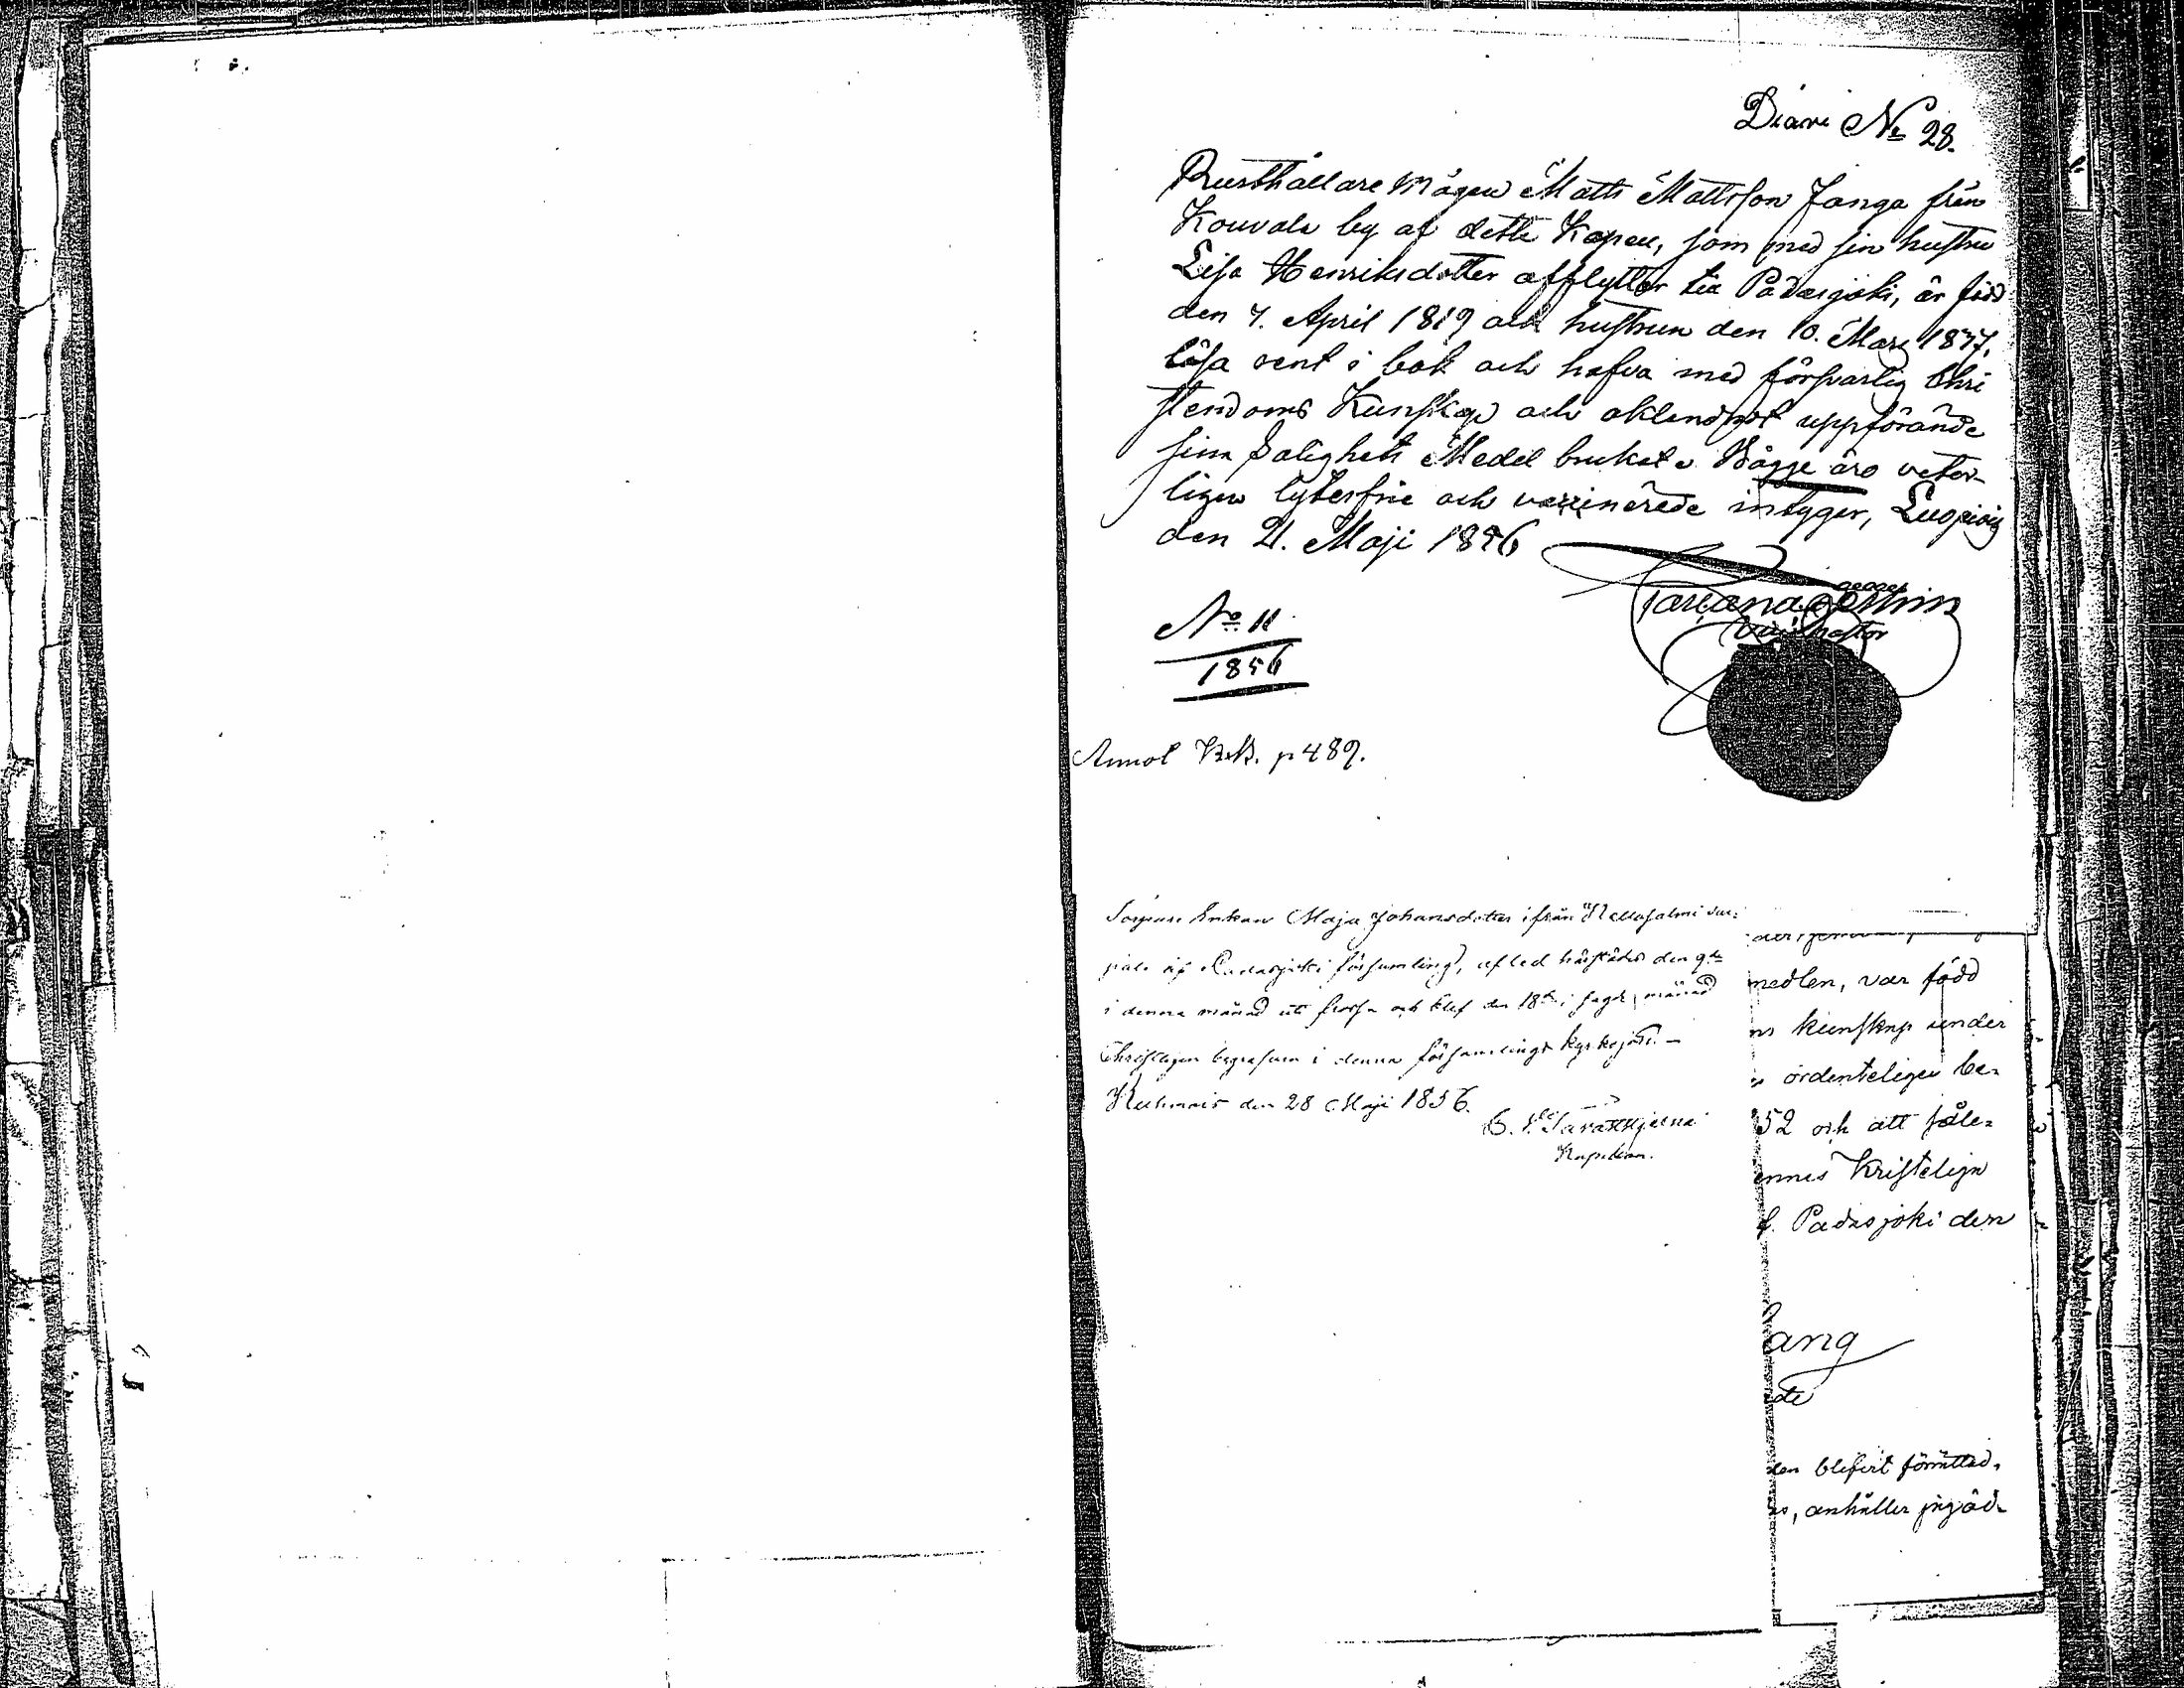 Diarie № 28.
Rusthållare Mågen Matts Mattsson Janga från
Kouvala by af detta Kapell, som med sin hustru
Lisa Henriksdotter afflyttar till Padasjoki, är född
den 7. April 1819 och hustrun den 10. Mars
läsa rent i bok och hafva med försvarlig Chri
stendoms Kunskap och oklandrat uppförande
sina Salighets Medel brukat. Bägge äro veter-
ligen lytesfrie och vaccinerade intygar, Luopiois
den 21. Maji 1856
№ 11
1856
Annot p 489.
Enkan Maja Johansdotter ifrån
af Padasjoki församling, afled härstädes den 9de
i denna månad uti och blef den 18de i sagde månad
Christligen begrafven i denna församlings kyrkojord. –
Kuhmois den 28 Maji 1856.
Kapellan.
medlen, var född
ns kunskap under
ordenteligen be-
52 och att
ennes Kristeliga
f. Padasjoki den
ang
den blifvit förrättad,
, anhåller jag